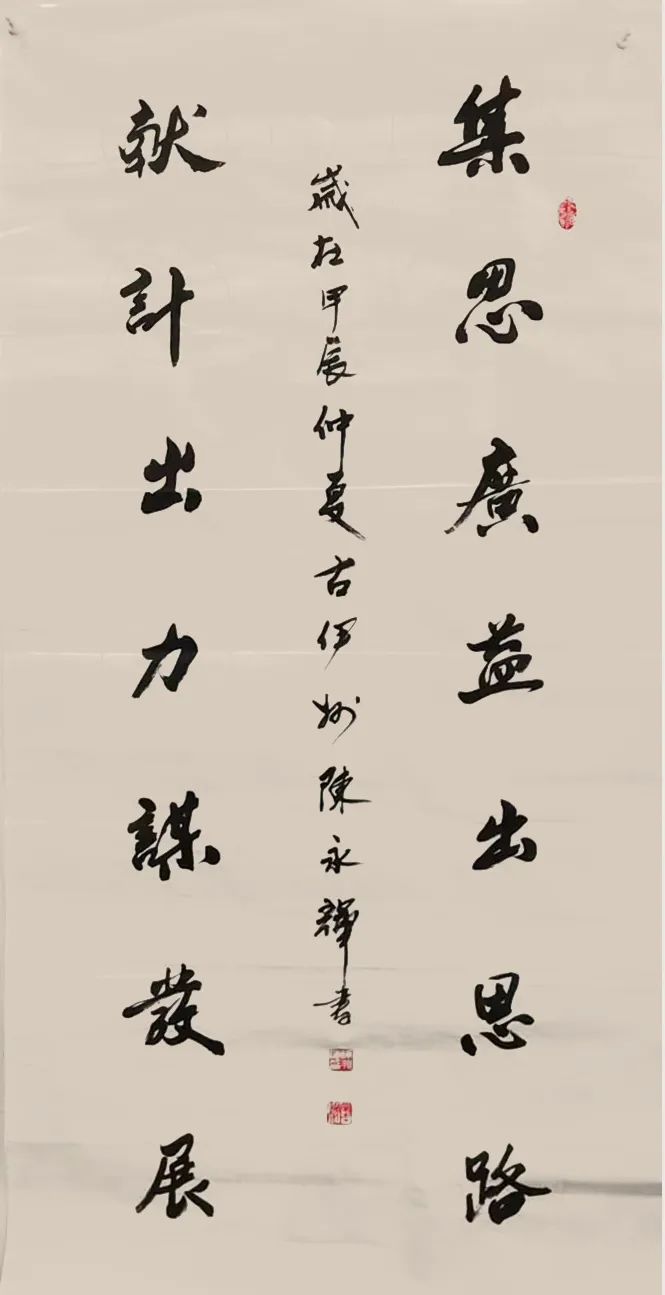 集思廣益出思路
歲在甲辰仲夏古伊州陳永輝書
献計出力謀發展